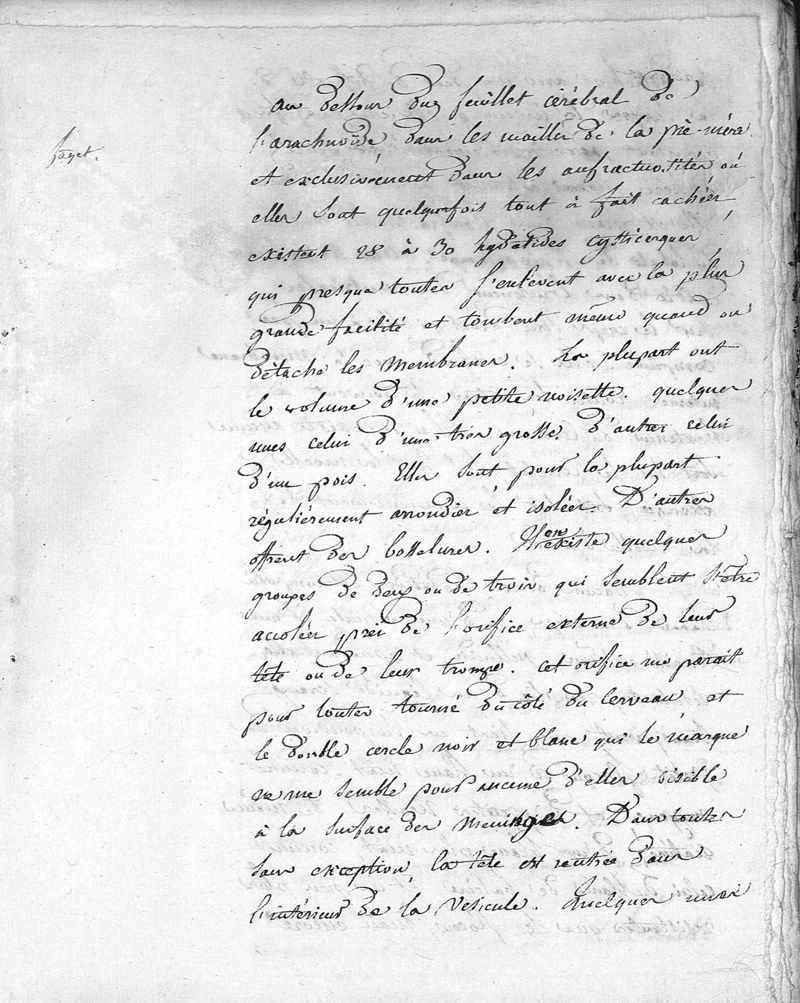 faget.
au dessous du feuillet cérébral de
l'arachnoïde dans les mailles de la pie-mère
et exclusivement dans les anfractuosités où
elles sont quelquefois tout à fait cachées
existent 28 à 30 hydatides cysticerques
qui presque toutes s'enlèvent avec la plus
grande facilité et tombent même quand on
détache les membranes. La plupart ont
le volume d'une petite noisette. quelques
unes celui d'une très grosse, d'autres celui
d'un pois. Elles sont pour la plupart
régulièrement arrondies et isolées. D'autres
offrent des bosselures. Il en existe quelques
groupes de deux ou de trois qui semblent s'être
accolées près de l'orifice externe de leur
tête ou de leur trompe. cet orifice me parait
pour toutes tourné du côté du cerveau et
le double cercle noir et blanc qui le marque
ne me semble pour aucune d'elles visible
à la surface des meninges. Dans toutes
sans exception, la tête est rentrée dans
l'intérieur de la vésicule. Quelques unes